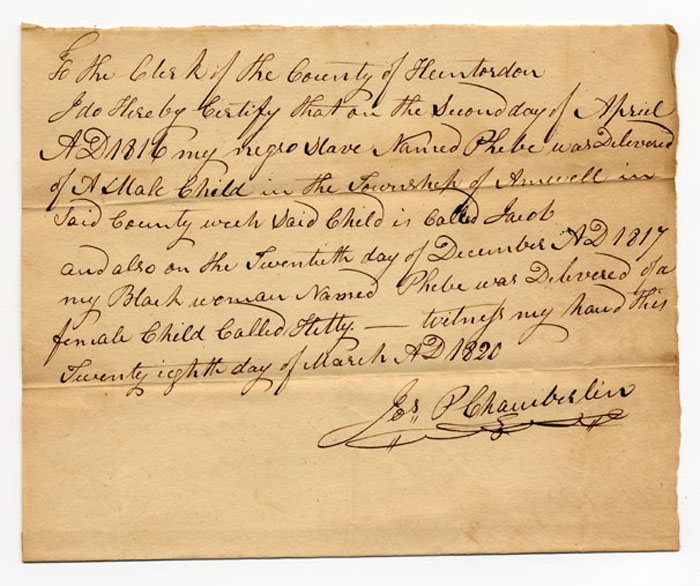 To the Clerk of the County of Huntordon
I do Hereby Certify that on the Second day of April
AD 1816 my negro slave Named Phebe was Delivered
of A Male Child in the Township of Amwell in
Said County wech Said Child is Called Jacob
and also on the Twentieth day of December AD 1817
my Black woman Named Phebe was Delivered of a
female Child Called Hetty. — witness my hand this
Twenty eighth day of March AD 1820
Jos. P Chamberlin